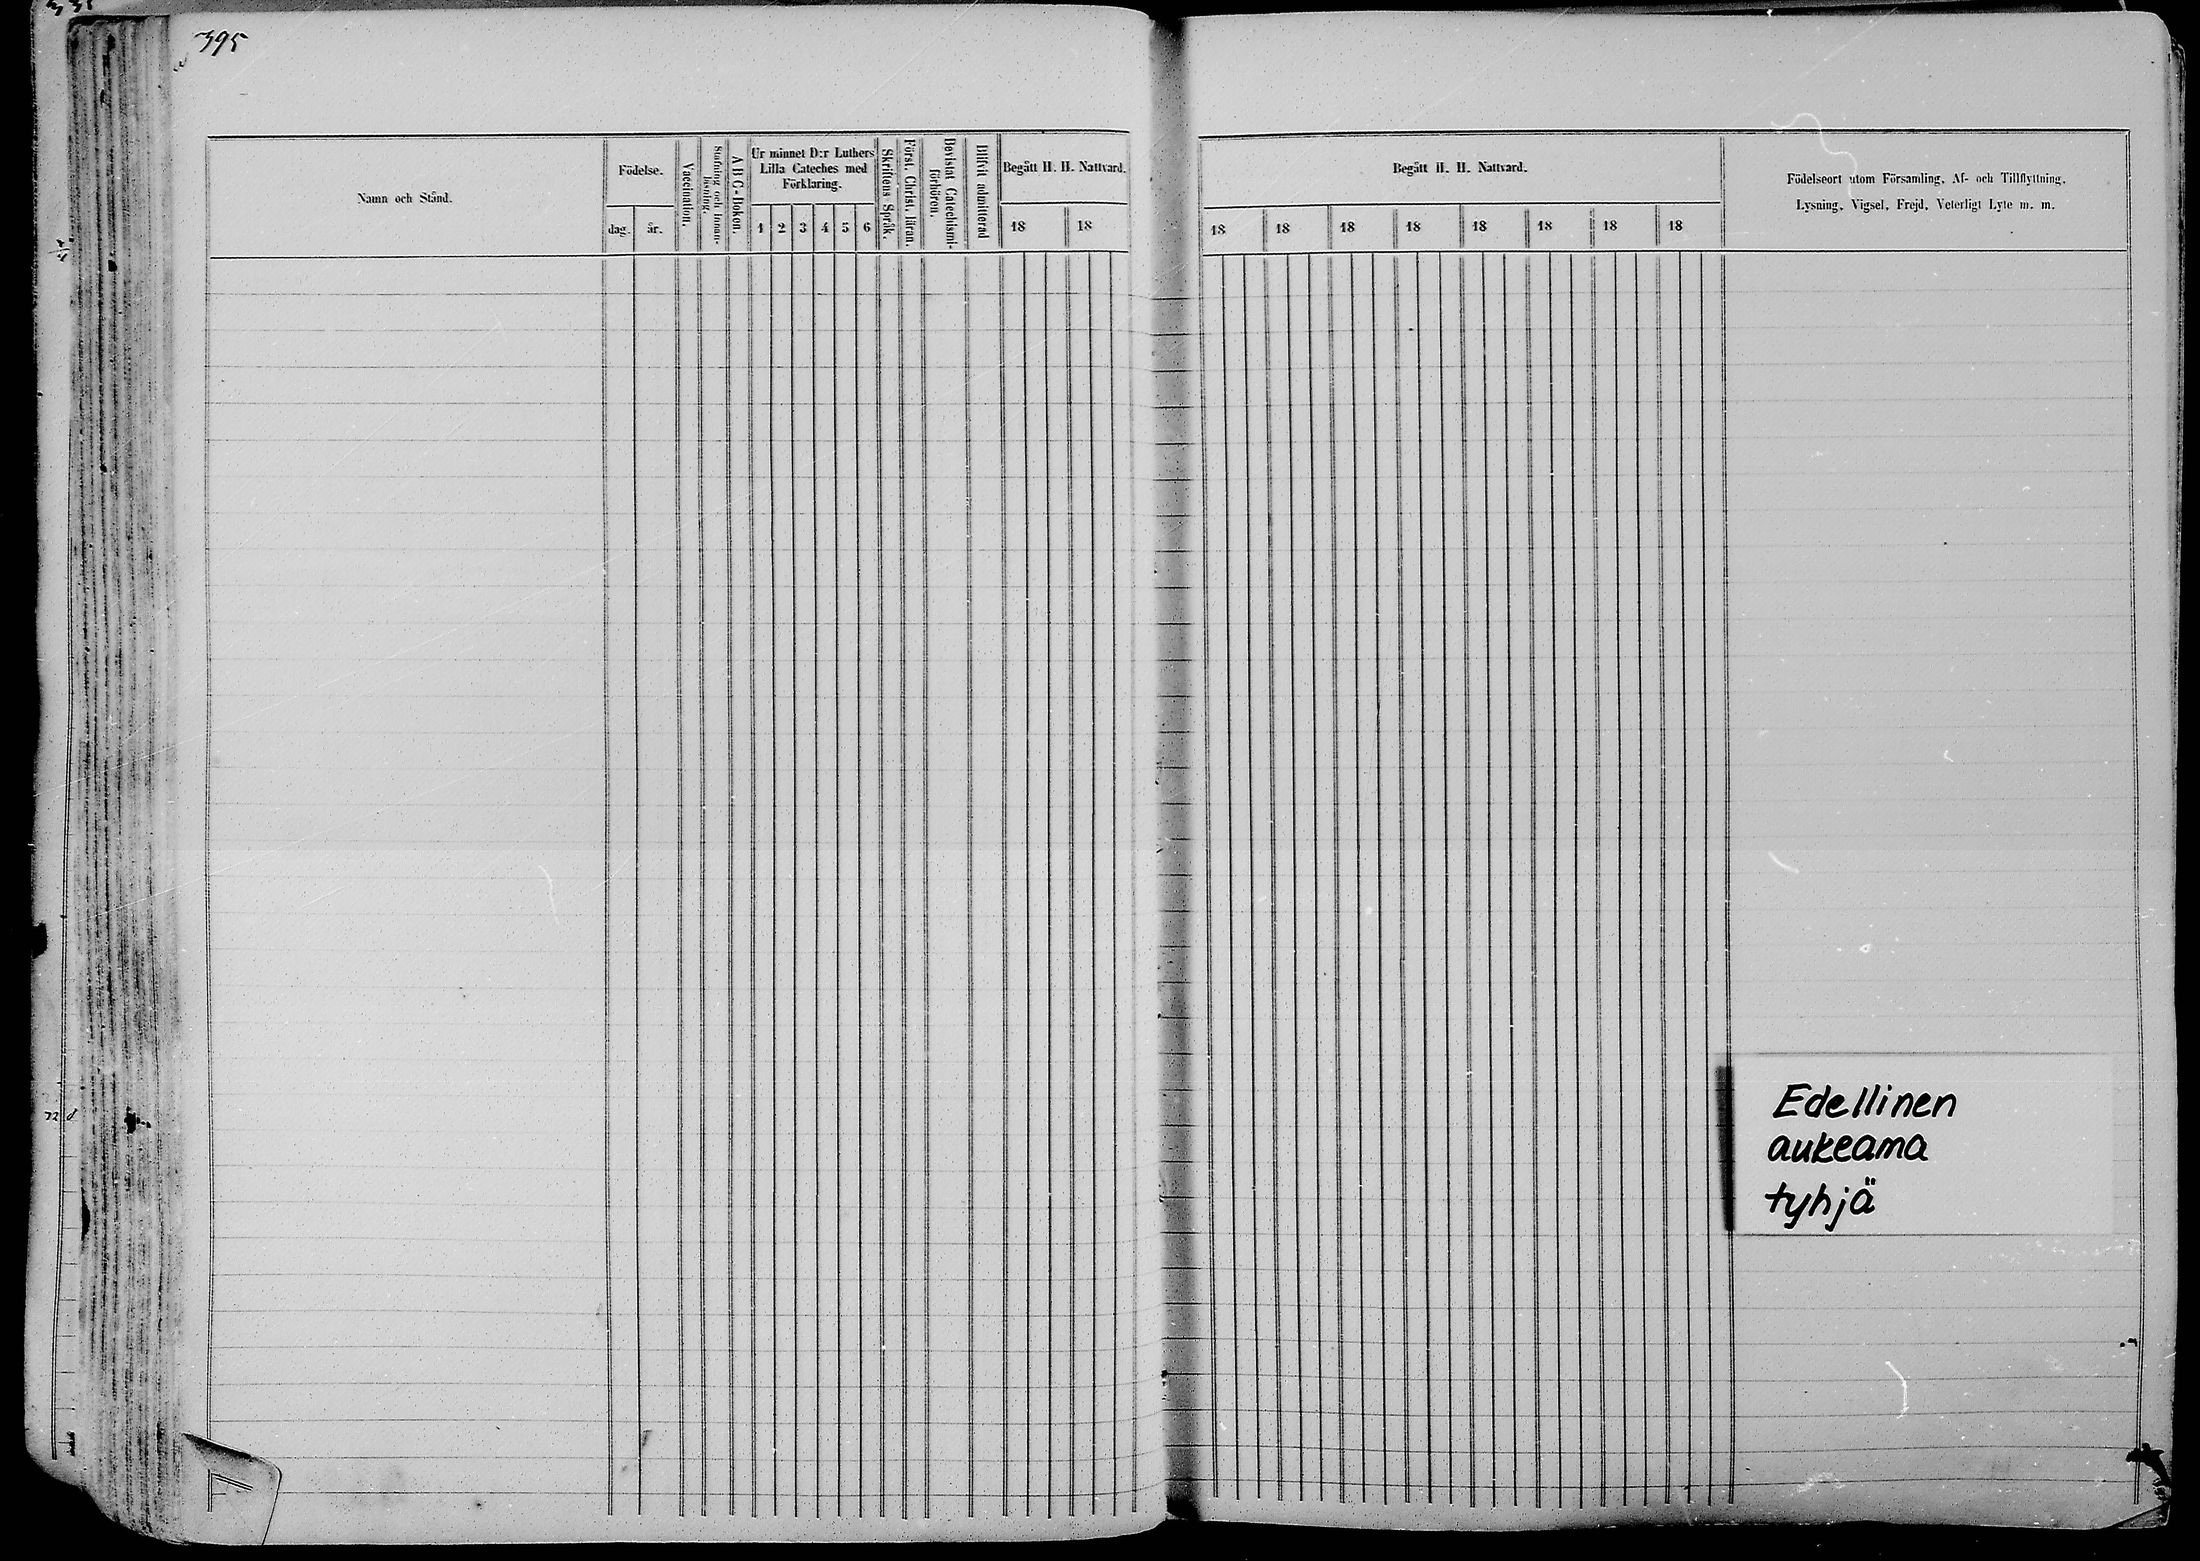 395
Namn och Stånd.
Födelse.
dag.
år.
Vaccination.
Stafning och Innan-
läsning.
A B C-Boken.
Ur minnet D:r Luthers
Lilla Cateches med
Förklaring.
1 2 3 4 5 6
Skriftens Språk.
Först. Christ. läran.
Bevistat Catechismi-
förhören.
Blifvit admitterad
Begått H. H. Nattvard.
18 18
Begått H. H. Nattvard.
18 18 18 18 18 18 18 18
Födelseort utom Församling, Af- och Tillflyttning,
Lysning, Vigsel, Frejd, Veterligt Lyte m. m.
Edellinen
aukeama
tyhjä